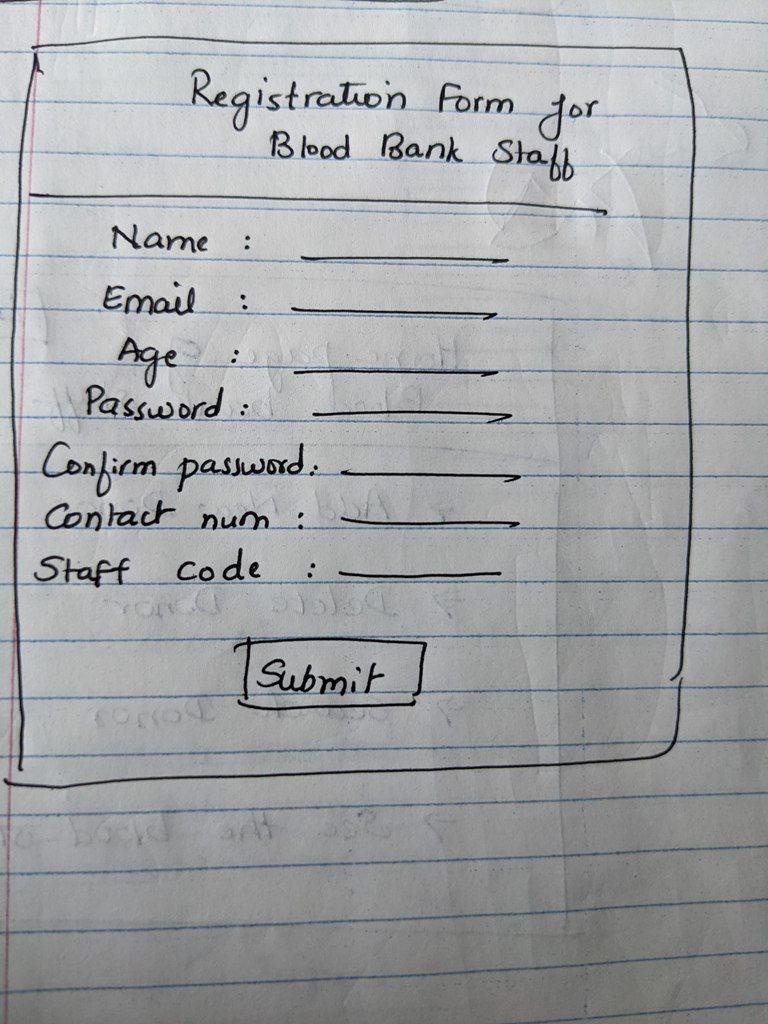 Registration Form for
Blood Bank Staff
Name :
Email :
Age :
Password :
Confirm password :
Contact num :
Staff code :
Submit